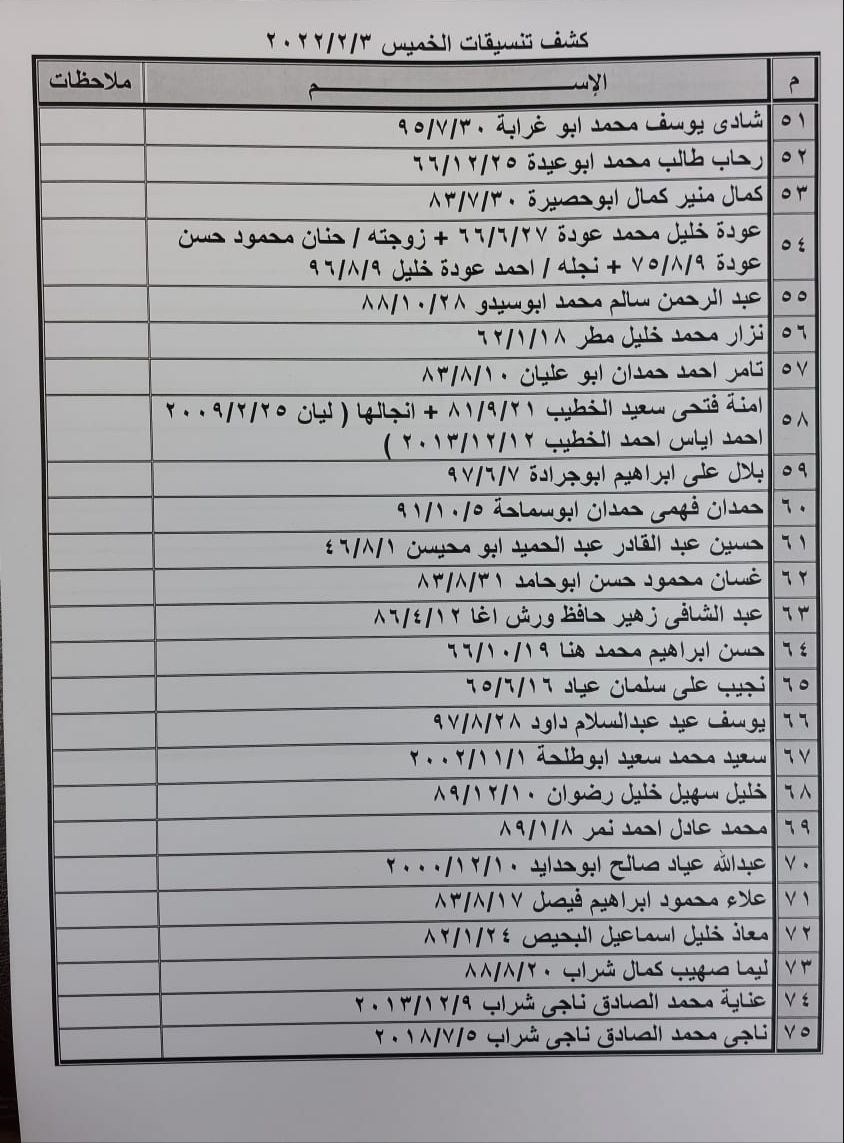 كشف تنسيقات الخميس ٢٠٢٢/٢/٣
م الإســـــــــــم ملاحظات
٥١ شادى يوسف محمد ابو غرابة ٩٥/٧/٣٠
٥٢ رحاب طالب محمد ابوعيدة ٦٦/١٢/٢٥
٥٣ كمال منير كمال ابوحصيرة ٨٣/٧/٣٠
٥٤ عودة خليل محمد عودة ٦٦/٦/٢٧ + زوجته / حنان محمود حسن
عودة ٧٥/٨/٩ + نجله / احمد عودة خليل ٩٦/٨/٩
٥٥ عبد الرحمن سالم محمد ابوسيدو ٨٨/١٠/٢٨
٥٦ نزار محمد خليل مطر ٦٢/١/١٨
٥٧ تامر احمد حمدان ابو عليان ٨٣/٨/١٠
٥٨ امنة فتحى سعيد الخطيب ٨١/٩/٢١ + انجالها ( ليان ٢٠٠٩/٢/٢٥
احمد اياس احمد الخطيب ٢٠١٣/١٢/١٢ )
٥٩ بلال على ابراهيم ابوجرادة ٩٧/٦/٧
٦٠ حمدان فهمى حمدان ابوسماحة ٩١/١٠/٥
٦١ حسين عبد القادر عبد الحميد ابو محيسن ٤٦/٨/١
٦٢ غسان محمود حسن ابوحامد ٨٣/٨/٣١
٦٣ عبد الشافى زهير حافظ ورش اغا ٨٦/٤/١٢
٦٤ حسن ابراهيم محمد هنا ٦٦/١٠/١٩
٦٥ نجيب على سلمان عياد ٦٥/٦/١٦
٦٦ يوسف عيد عبدالسلام داود ٩٧/٨/٢٨
٦٧ سعيد محمد سعيد ابوطلحة ٢٠٠٢/١١/١
٦٨ خليل سهيل خليل رضوان ٨٩/١٢/١٠
٦٩ محمد عادل احمد نمر ٨٩/١/٨
٧٠ عبدالله عياد صالح ابوحدايد ٢٠٠٠/١٢/١٠
٧١ علاء محمود ابراهيم فيصل ٨٣/٨/١٧
٧٢ معاذ خليل اسماعيل البحيص ٨٢/١/٢٤
٧٣ ليما صهيب كمال شراب ٨٨/٨/٢٠
٧٤ عناية محمد الصادق ناجى شراب ٢٠١٣/١٢/٩
٧٥ ناجى محمد الصادق ناجى شراب ٢٠١٨/٧/٥